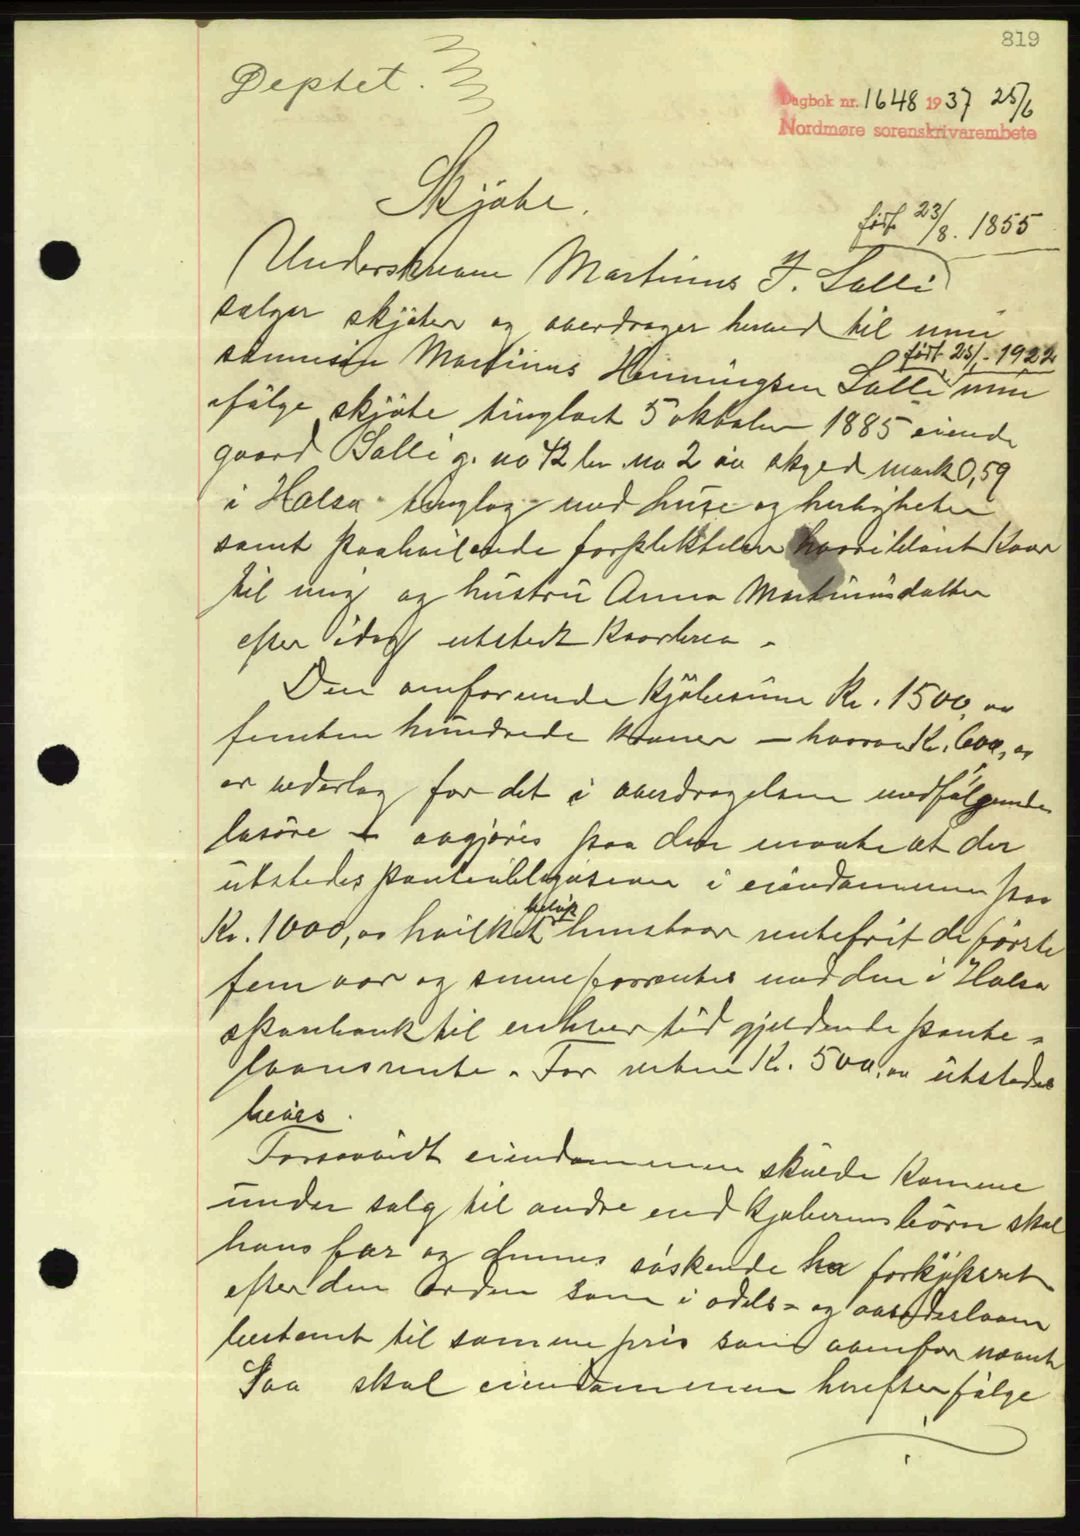 819
Deptet.
Dagbok nr. 1648 1937 25/6
Nordmøre sorenskrivarembete
Skjöte.
født 23/8. 1855
Underskreven Martinus J. Salli
sælger skjöter og overdrager herved til min
født 25/1 - 1922
sønnesøn Martinus Henningsen Salli min
ifölge skjöte tinglæst 5 oktober 1885 eiende
gaard Salli g. no 42 br. no 2 av skyld mark 0,59
i Halsa tinglag med huse og herligheter
samt paahvilende forpliktelser hvoriblant Kaar
til mig og hustru Anna Martinusdatter
efter idag utstedt Kaarbrev.
Den omforenede Kjöbesum Kr. 1500,00
femten hundrede kroner – hvorav Kr. 600,00
er vederlag for det i overdragelsen medfølgende
løsøre – avgjøres paa den maate at der
utstedes panteobligasion i eiendommen paa
Kr. 1000,00 hvilket beløp henstaar rentefrit de første
fem aar og senere forrentes med den i Halsa
sparbank til enhver tid gjeldende pante-
laansrente. For resten Kr. 500,00 utstedes
bevis.
Forsaavidt eiendommen skulde komme
under salg til andre end kjøberens børn skal
hans far og dennes søskende ha forkjøpsret
efter den orden som i odels- og aasædesloven
bestemt til samme pris som ovenfor nævnt
Saa skal eiendommen herefter følge